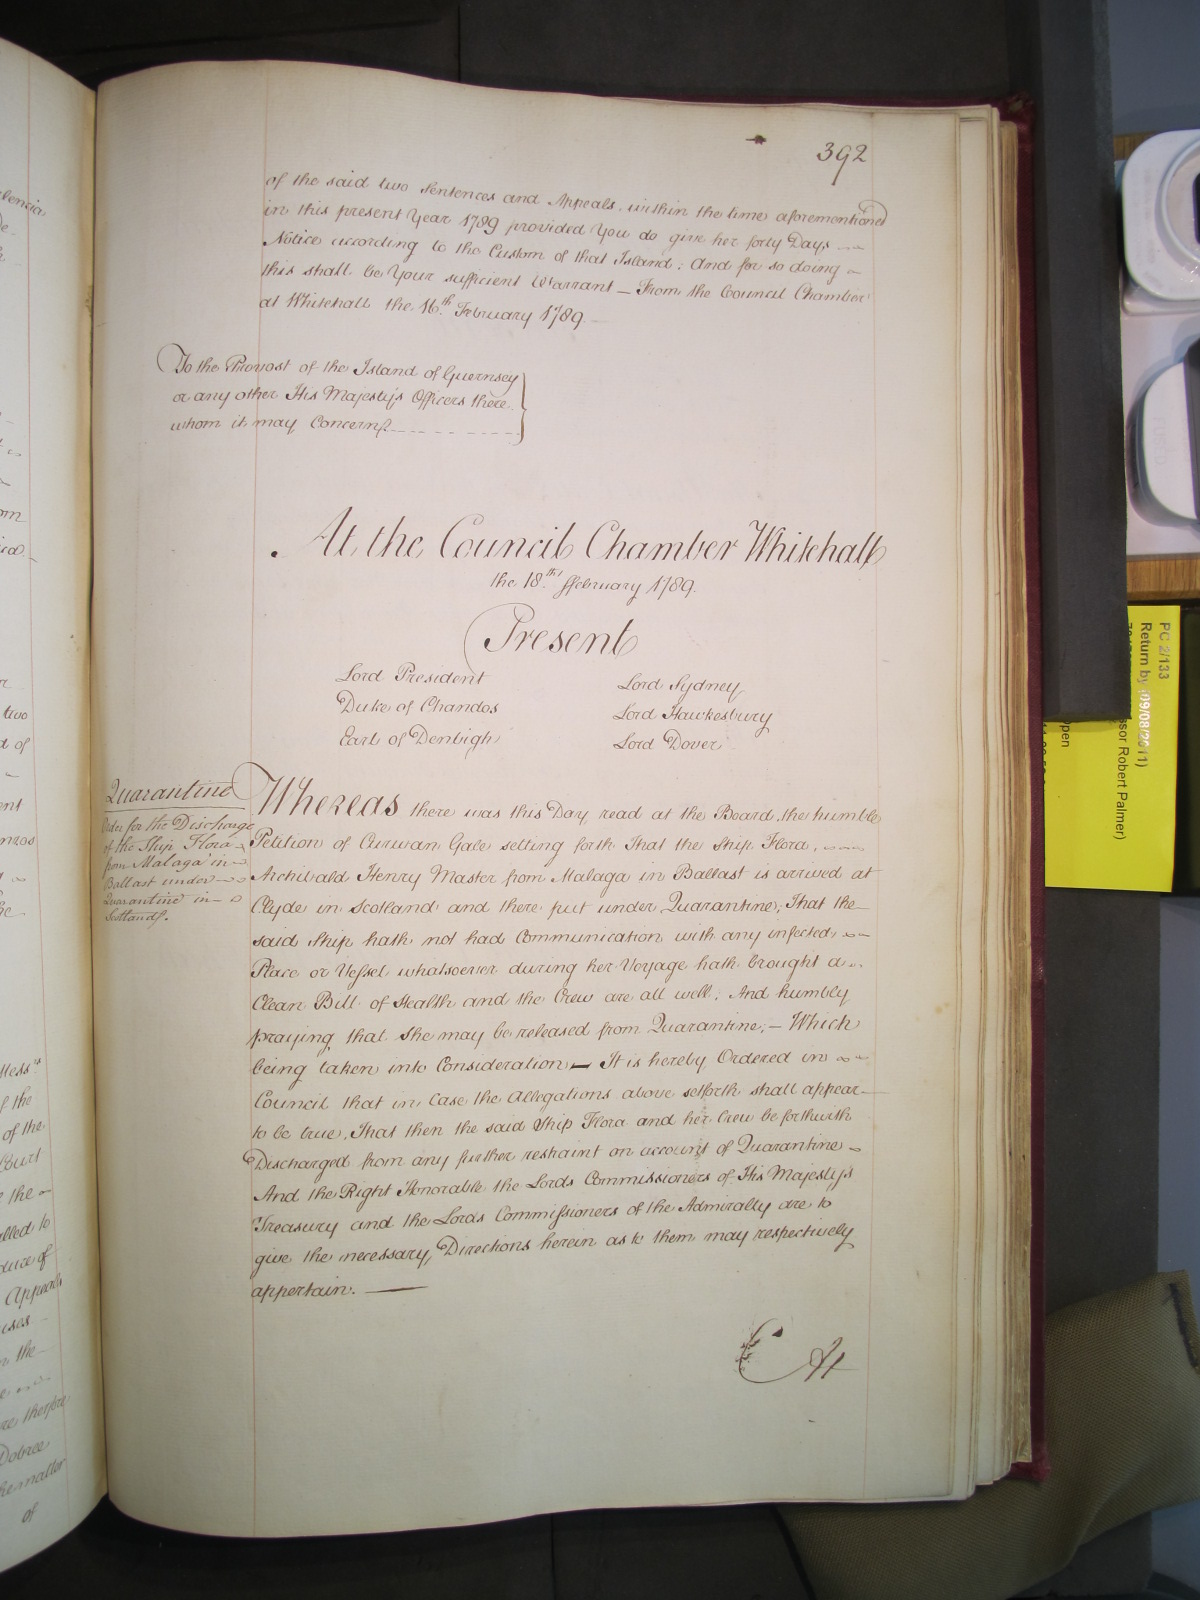 392
of the said two Sentences and Appeals within the time aforementioned
in this present Year 1789 provided You do give her forty Days
Notice according to the Custom of that Island: And for so doing
this shall be Your sufficient Warrant — From the Council Chamber
at Whitehall the 16.th February 1789 —
To the Provost of the Island of Guernsey
or any other His Majestys Officers there
whom it may Concern
At the Council Chamber Whitehall
the 18.th ffebruary 1789.
Present
Lord President
Duke of Chandos
Earl of Denbigh
Lord Sydney
Lord Hawkesbury
Lord Dover
Quarantine
Order for the Discharge
of the Ship Flora
from Malaga in
Ballast under
Quarantine in
Scotland.
Whereas there was this Day read at the Board the humble
Petition of Curwan Gale setting forth That the Ship Flora,
Archibald Henry Master from Malaga in Ballast is arrived at
Clyde in Scotland and there put under Quarantine; That the
said Ship hath not had Communication with any infected
Place or Vessel whatsoever during her Voyage hath brought a
Clean Bill of Health and the Crew are all well; And humbly
praying that She may be released from Quarantine; — Which
being taken into Consideration — It is hereby Ordered in
Council that in Case the Allegations above setforth shall appear
to be true, That then the said Ship Flora and her Crew be forthwith
Discharged from any further restraint on account of Quarantine
And the Right Honorable the Lords Commissioners of His Majestys
Treasury and the Lords Commissioners of the Admiralty are to
give the necessary Directions herein as to them may respectively
appertain. —
At
PC 2/133
Return by (09/08/2011)
ssor Robert Palmer)